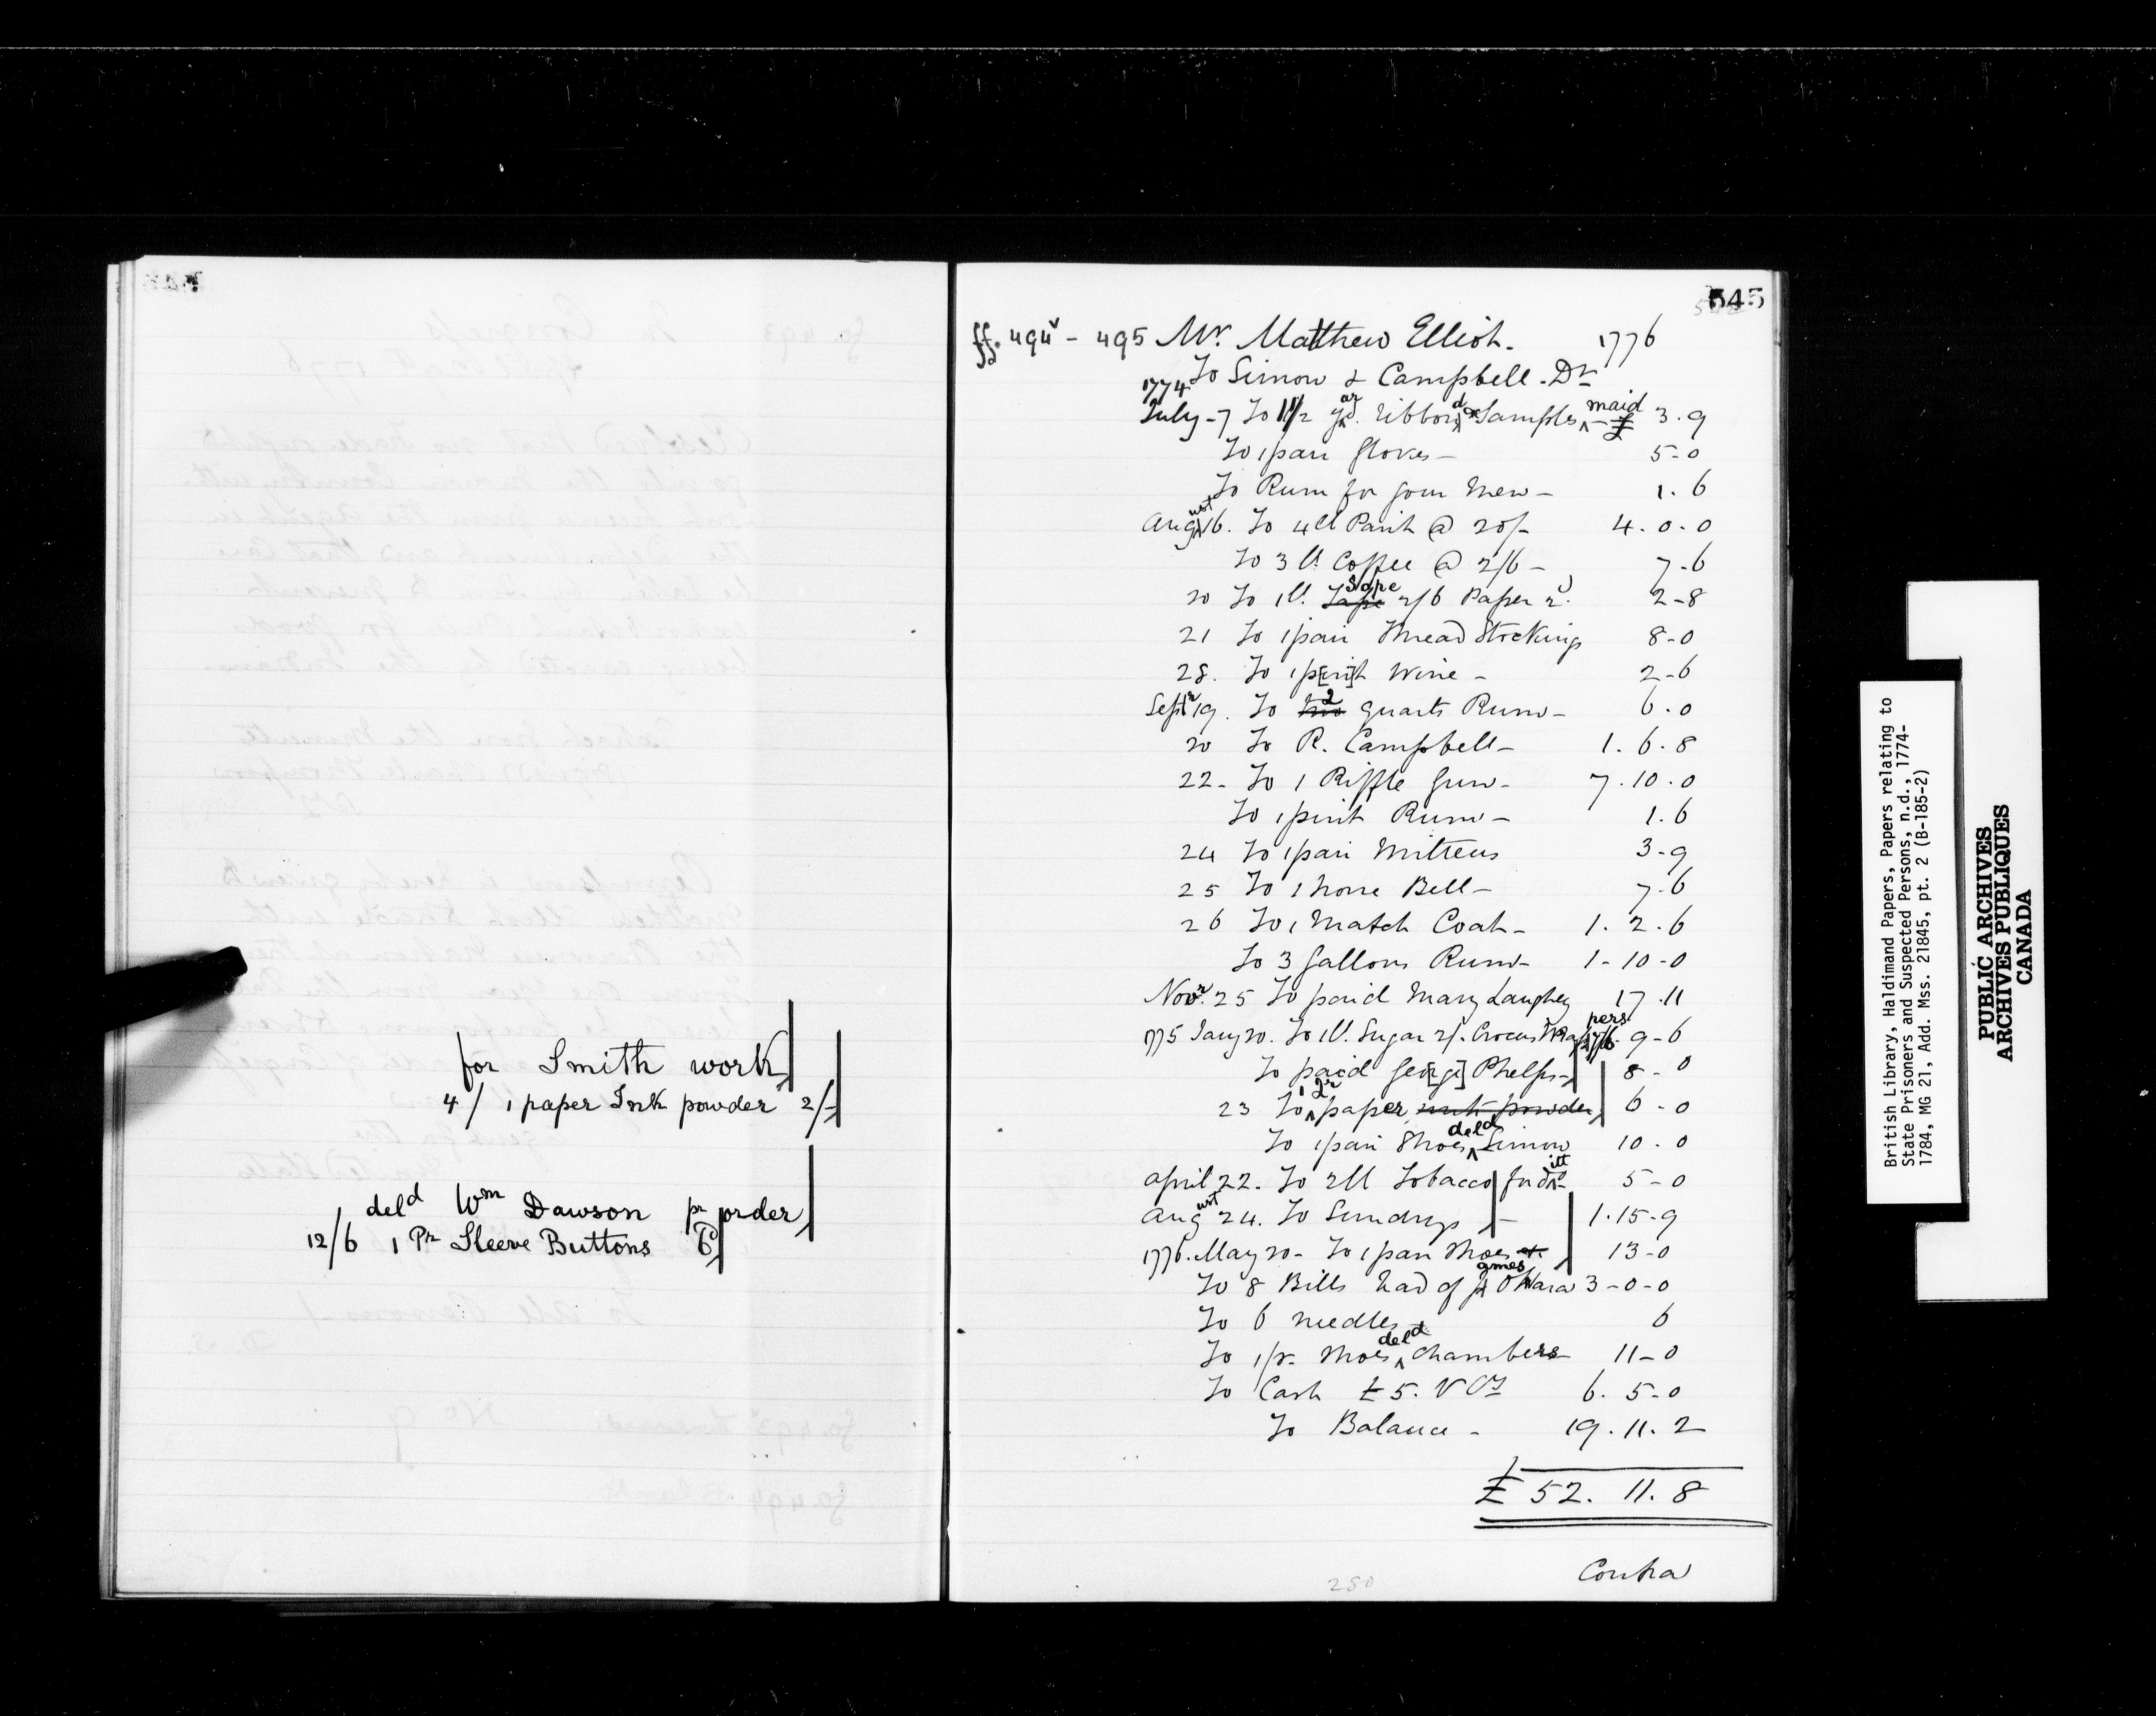 for Smith work
4/ 1 paper Ink powder 2/-
deld Wm Dawson pr order
12/6 1 Pr Sleeve Buttons 6d
545
ff. 494v - 495 Mr. Matthew Elliot. 1776
To Simon & Campbell. Dr
1774
July 7 To 1 1/2 yard. ribbond & Samples maid £ 3.9
To 1 pair Gloves - 5-0
To Rum for your Men - 1.6
August 16. To 4 ll Paint @ 20/- 4.0.0
To 3 ll. Coffee @ 2/6 - 7-6
20 To 1 ll. Tape Sope 2/6 Paper 2d. 2-8
21 To 1 pair Thread Stockings 8-0
28. To 1 p[in]t Wine - 2-6
Septr 19. To two 2 quarts Rum - 6.0
20 To R. Campbell - 1.6.8
22 - To 1 Riffle Gun - 7.10.0
To 1 pint Rum - 1.6
24 To 1 pair Mittens 3-9
25 To 1 horse Bell - 7-6
26 To 1 Match Coat - 1.2.6
To 3 Gallons Rum - 1-10-0
Novr. 25 To paid Mary Laughey 17.11
1775 Jany 20. To 1 ll. Sugar 2/. Crocus 7/6. 9-6
To paid Geo[rge] Phelps - 8-0
23 To 1 qr paper ink powder 6-0
To 1 pair Shoes deld Simon 10.0
April 22. To 2 ll Tobacco 5-0
August 24. To Sundrys - 1.15.9
1776. May 20 - To 1 pair Shoes & 13-0
To 8 Bills had of James OHara 3-0-0
To 6 needles 6
To 1 pr. Shoes deld Chambers - 11-0
To Cash £5. V Cy 6.5-0
To Balance - 19.11.2
£ 52.11.8
Contra
280
British Library, Haldimand Papers, Papers relating to
State Prisoners and Suspected Persons, n.d., 1774-
1784, MG 21, Add. Mss. 21845, pt. 2 (B-185-2)
PUBLIC ARCHIVES
ARCHIVES PUBLIQUES
CANADA